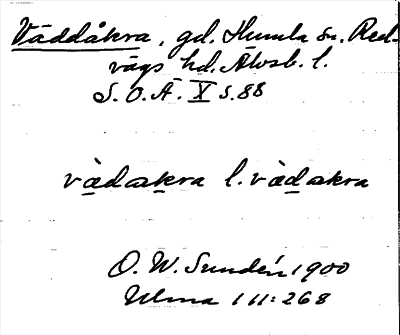 Väddåkra, gd. Humla sn. Red-
vägs hd. Älvsb. l.
S. O. Ä. X s. 88
vädakra l. vädakra
O. W. Sundén 1900
Ulma 111:268